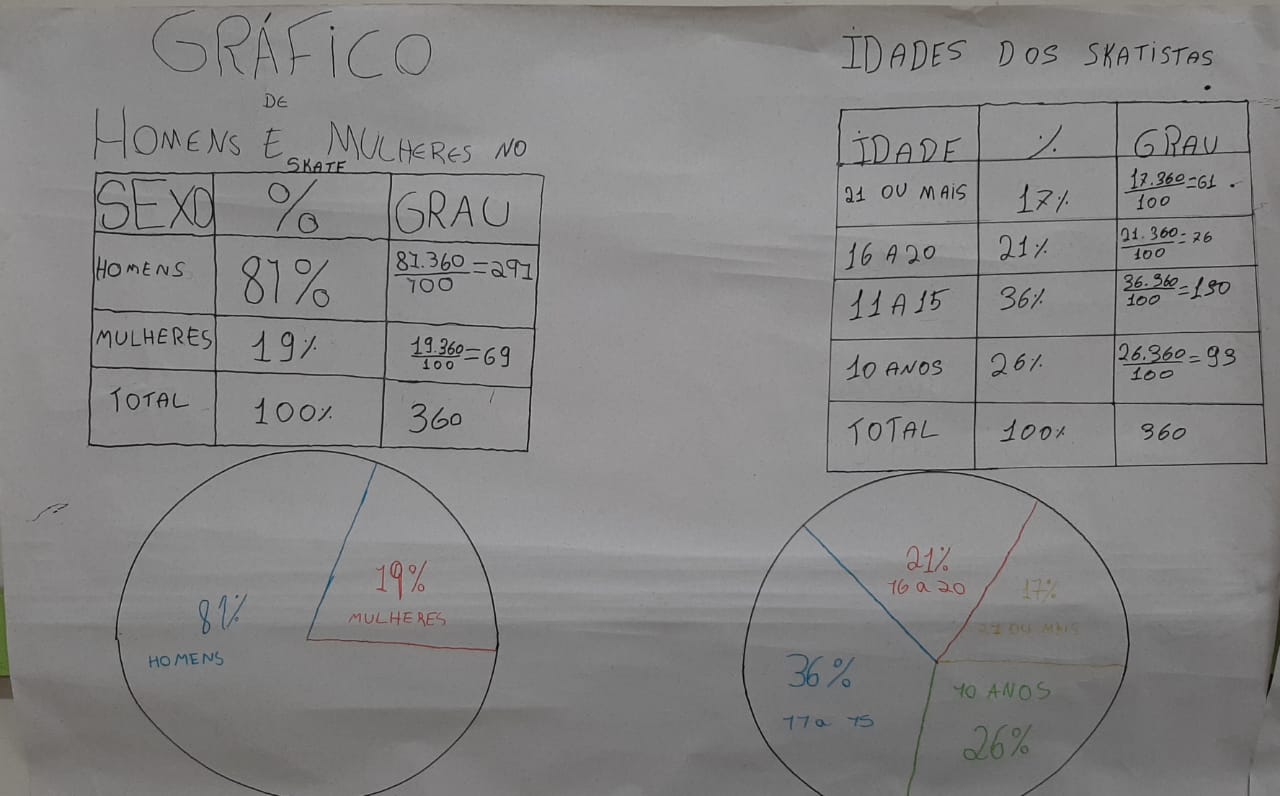 GRÁFICO
DE
HOMENS E MULHERES NO
SKATE
SEXO % GRAU
HOMENS 81% 81.360/100=291
MULHERES 19% 19.360/100=69
TOTAL 100% 360
81%
HOMENS
19%
MULHERES
IDADES DOS SKATISTAS
IDADE % GRAU
21 OU MAIS 17% 17.360/100=61
16 A 20 21% 21.360/100=76
11 A 15 36% 36.360/100=130
10 ANOS 26% 26.360/100=93
TOTAL 100% 360
21%
16 a 20
17%
21 OU MAIS
36%
11 a 15
10 ANOS
26%